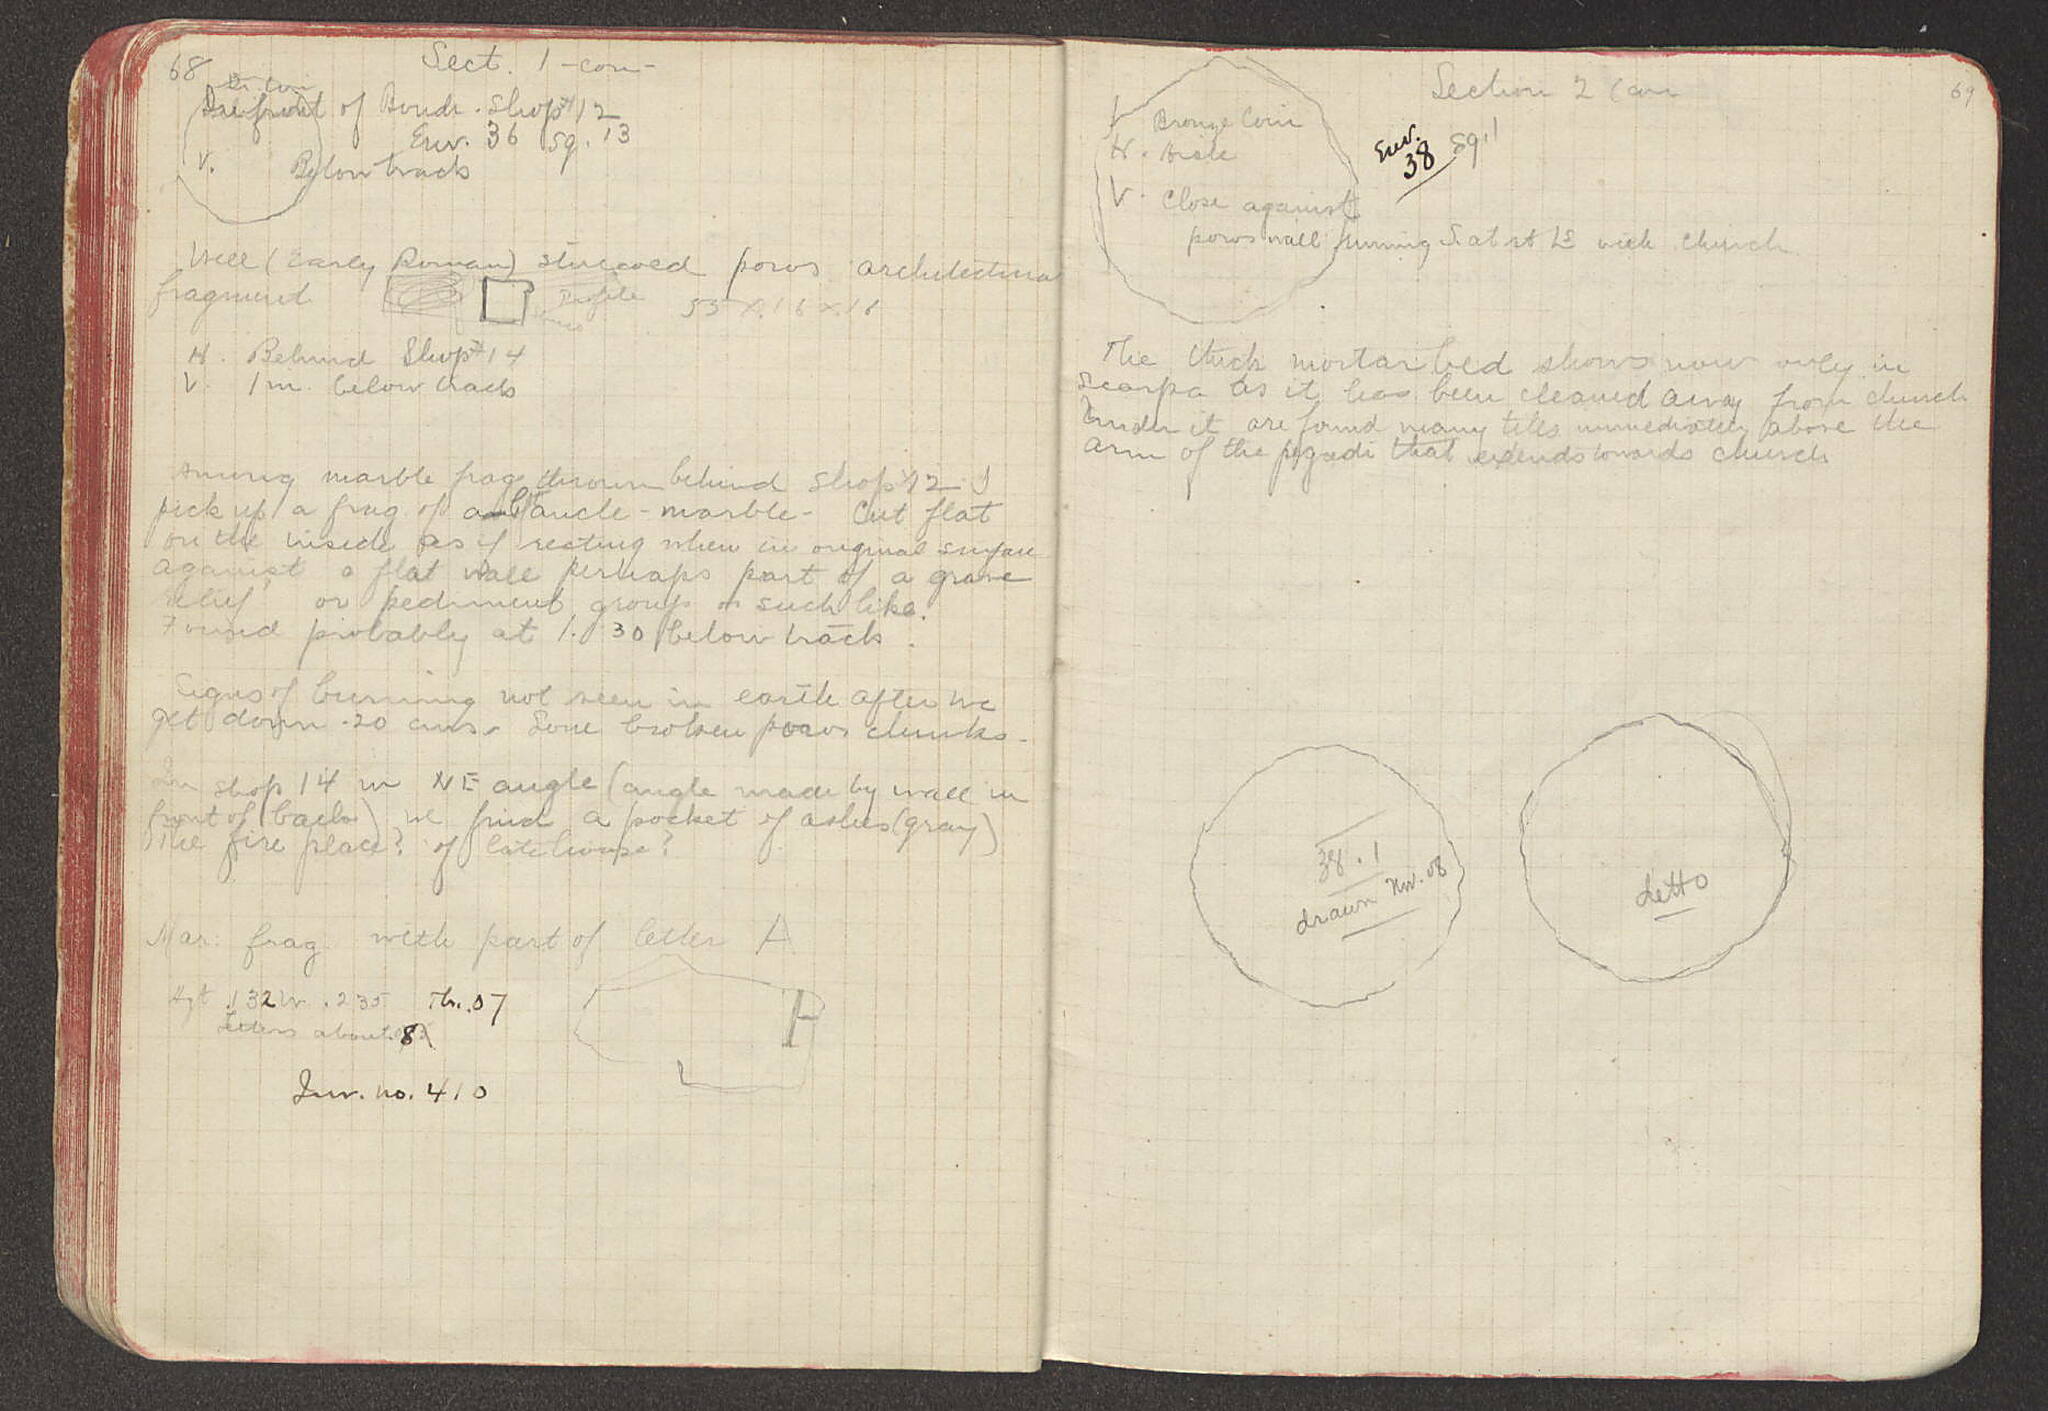 68
Sect. 1 -con-
Br. Coin
In front of Boudr. Shop #12
Env. 36 sq. 13
V. Below track
Well (Early Roman) stuccoed poros architectural
fragment Profile 53 x .16 x .16
H. Behind Shop #14
V. 1 m. below track
Among marble frag thrown behind Shop #12 I
pick up a frag of a mantle - marble - Cut flat
on the inside as if resting when in original surface
against a flat wall perhaps part of a grave
relief, or pediment group or such like.
Found probably at 1.30 below track.
Signs of burning not seen in earth after we
get down .20 cms. Some broken poros chunks -
In shop 14 in NE angle (angle made by wall in
front of back) we find a pocket of ashes (gray)
The fire place? of late house?
Mar. frag. with part of letter A
Hgt .132 W .235 Th. .07
Letters about 8
Inv. no. 410
Section 2 Con
69
Bronze Coin
Env. 38 sq. 1
H.
V. Close against
poros wall running with church
The thick mortar bed shows now only in
Scarpa as it has been cleaned away from church
Under it are found many tiles immediately above the
arm of the pegadi that extends towards church
38.1
drawn Nov. 08
ditto